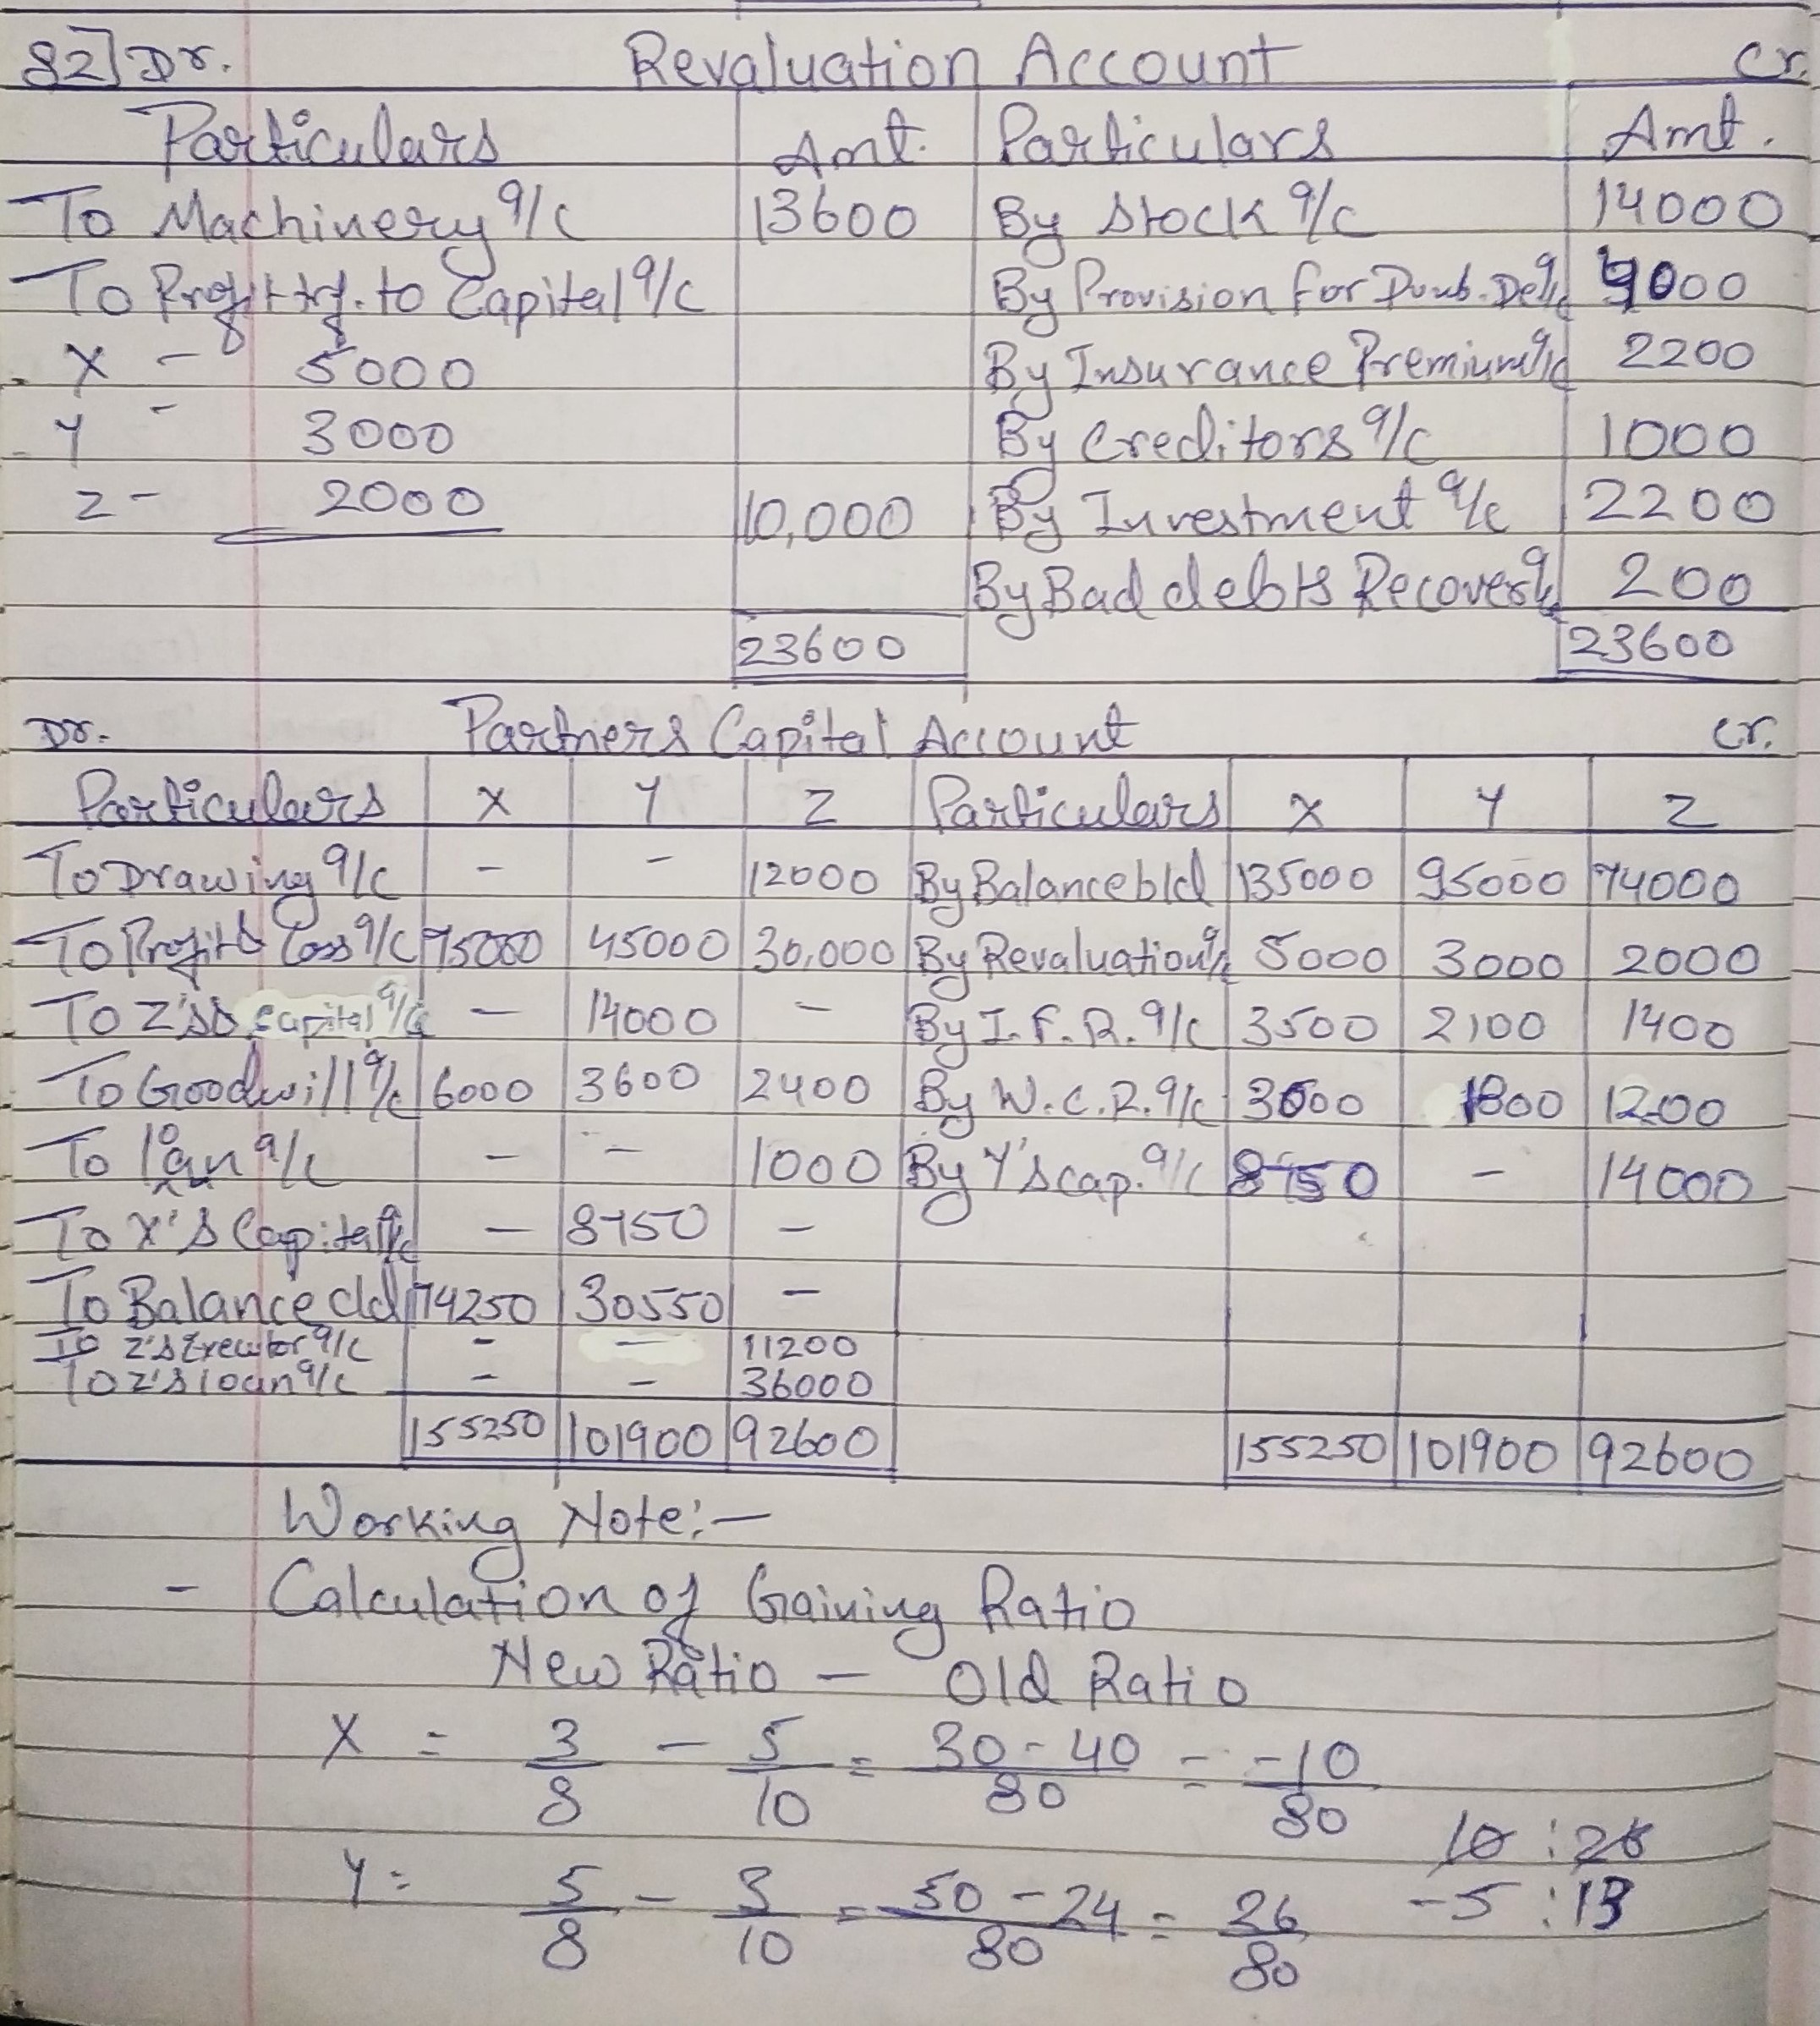 82] Dr. Revaluation Account Cr.
Particulars Amt. Particulars Amt.
To Machinery a/c 13600 By Stock a/c 14000
To Profit trf. to Capital a/c By Provision for Doub. Deb a/c 4000
X - 5000 By Insurance Premium a/c 2200
Y - 3000 By Creditors a/c 1000
Z - 2000 10,000 By Investment a/c 2200
By Bad debts Recover a/c 200
23600 23600
Dr. Partners Capital Account Cr.
Particulars X Y Z Particulars X Y Z
To Drawing a/c - - 12000 By Balance b/d 135000 95000 74000
To Profit & Loss a/c 75000 45000 30,000 By Revaluation a/c 5000 3000 2000
To Z's capital a/c - 14000 - By I.F.R. a/c 3500 2100 1400
To Goodwill a/c 6000 3600 2400 By W.C.R. a/c 3000 1800 1200
To loan a/c - - 1000 By Y's cap. a/c 8750 - 14000
To X's Capital a/c - 8750 -
To Balance c/d 74250 30550 -
To Z's Executor a/c - - 11200
To Z's loan a/c - - 36000
155250 101900 92600 155250 101900 92600
Working Note:-
- Calculation of Gaining Ratio
New Ratio - Old Ratio
X = 3/8 - 5/10 = 30-40/80 = -10/80
10 : 26
Y = 5/8 - 3/10 = 50-24/80 = 26/80 -5 : 13